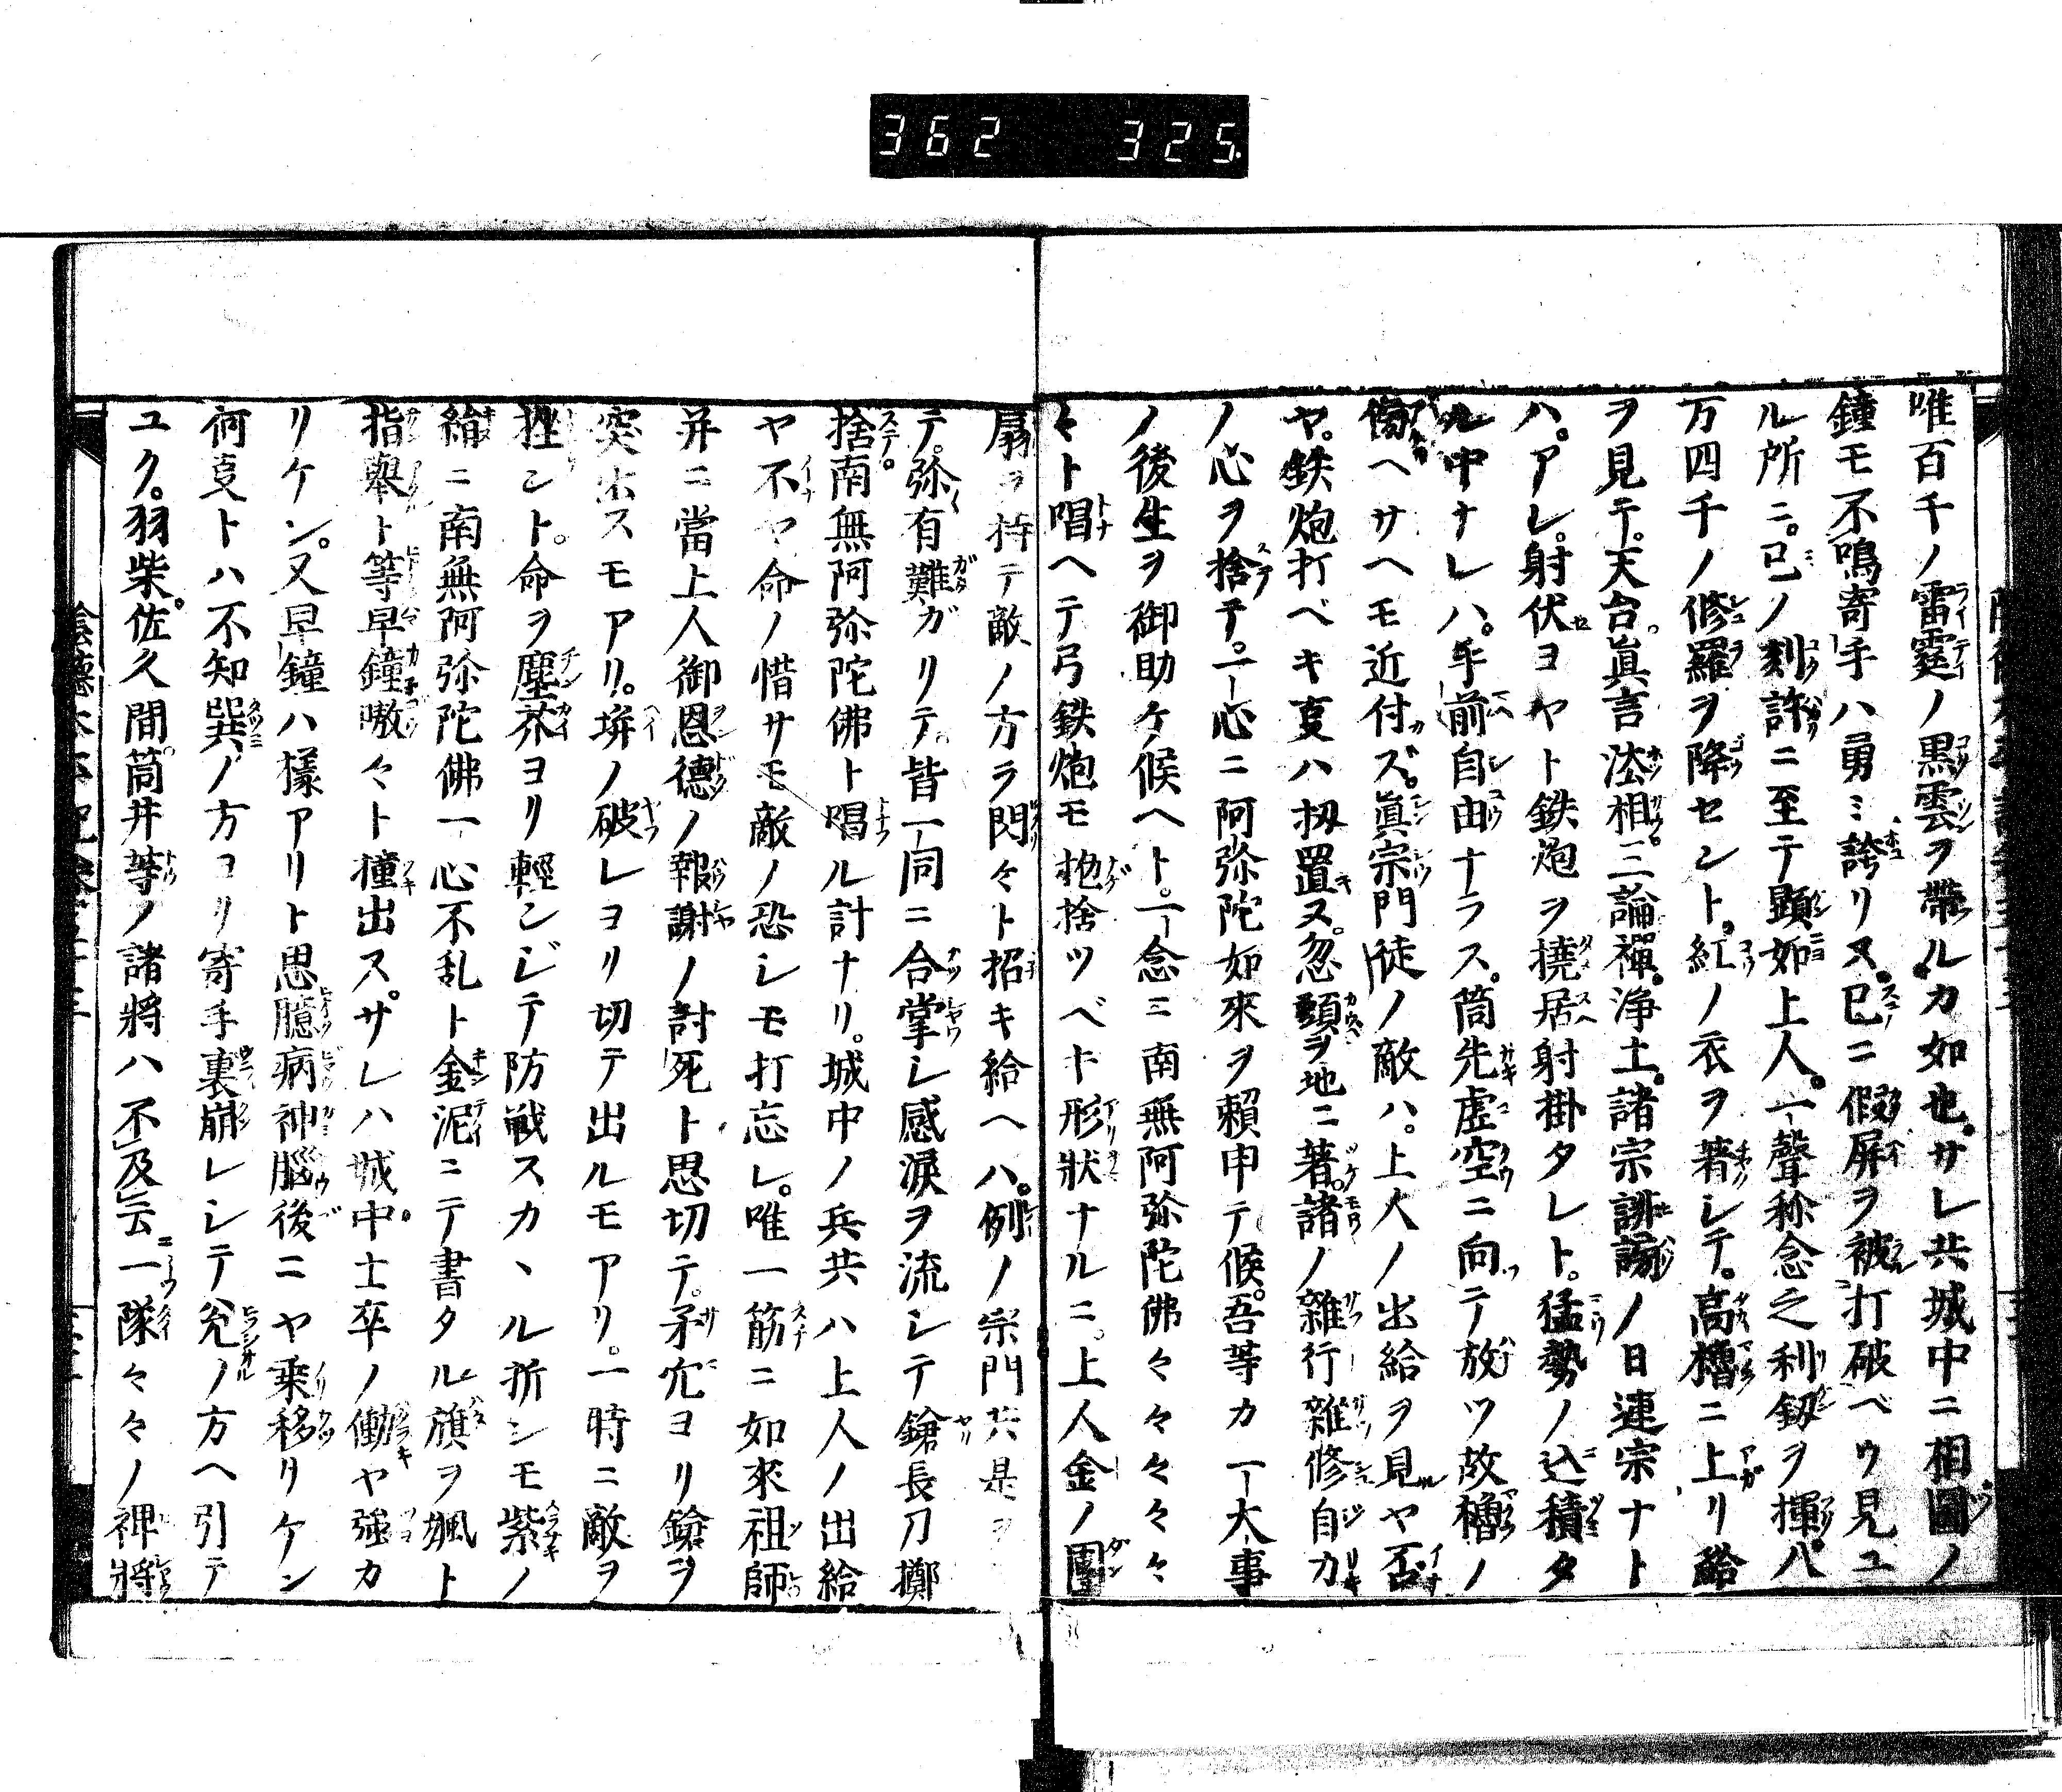 362 325
唯百千ノ雷霆ノ黒雲ヲ帶ルカ如也。サレ共城中ニ相圖ノ
鐘モ不鳴寄手ハ勇ミ誇リヌ。已ニ假屏ヲ被打破ベウ見ユ
ル所ニ。已ノ刻許ニ至テ顕如上人。一聲称念之利釼ヲ揮。八
万四千ノ修羅ヲ降セント。紅ノ衣ヲ著シテ。高櫓ニ上リ給
ヲ見テ。天台眞言法相。三論禪。浄土。諸宗誹謗ノ日連宗ナト
ハ。アレ。射伏ヨヤト鉄炮ヲ撓居射掛タレト。猛勢ノ込積タ
ル中ナレハ。手前自由ナラス。筒先虚空ニ向テ放ツ故櫓ノ
傷ヘサヘモ近付ズ。眞宗門徒ノ敵ハ。上人ノ出給ヲ見ヤ否
ヤ。鉄炮打ベキ叓ハ扨置ヌ。忽頭ヲ地ニ著。諸ノ雜行雜修自力
ノ心ヲ捨テ。一心ニ阿弥陀如來ヲ賴申テ候。吾等カ一大事
ノ後生ヲ御助ケ候ヘト。一念ニ南無阿弥陀佛々々々々々
々ト唱ヘテ弓鉄炮モ抱捨ツベト形狀ナルニ。上人金ノ團
扇ヲ持テ敵ノ方ラ閃々ト招キ給ヘハ。例ノ宗門共是ヲ
テ。弥有難ガリテ。皆一同ニ合掌シ感淚ヲ流シテ鎗長刀擲
捨。南無阿弥陀佛ト唱ル計ナリ。城中ノ兵共ハ上人ノ出給
ヤ不ヤ命ノ惜サモ敵ノ恐シモ打忘レ。唯一筋ニ如來祖師
并ニ當上人御恩德ノ報謝ノ討死ト思切テ。矛穴ヨリ鎗ヲ
突出スモアリ。塀ノ破レヨリ切テ出ルモアリ。一時ニ敵ヲ
挫ント。命ヲ塵芥ヨリ輕ンジテ防戦スカヽル折シモ紫ノ
絹ニ南無阿弥陀佛一心不乱ト金泥ニテ書タル旗ヲ颯ト
指舉ト等早鐘嗷々ト撞出ス。サレハ城中士卒ノ働ヤ強カ
リケン。又早鐘ハ様アリト思臆病神脳後ニヤ乗移リケン
何叓トハ不知巽ノ方ヨリ寄手裏崩レシテ兊ノ方ヘ引テ
ユク。羽柴。佐久間筒井等ノ諸將ハ不及云一隊々々ノ裨將